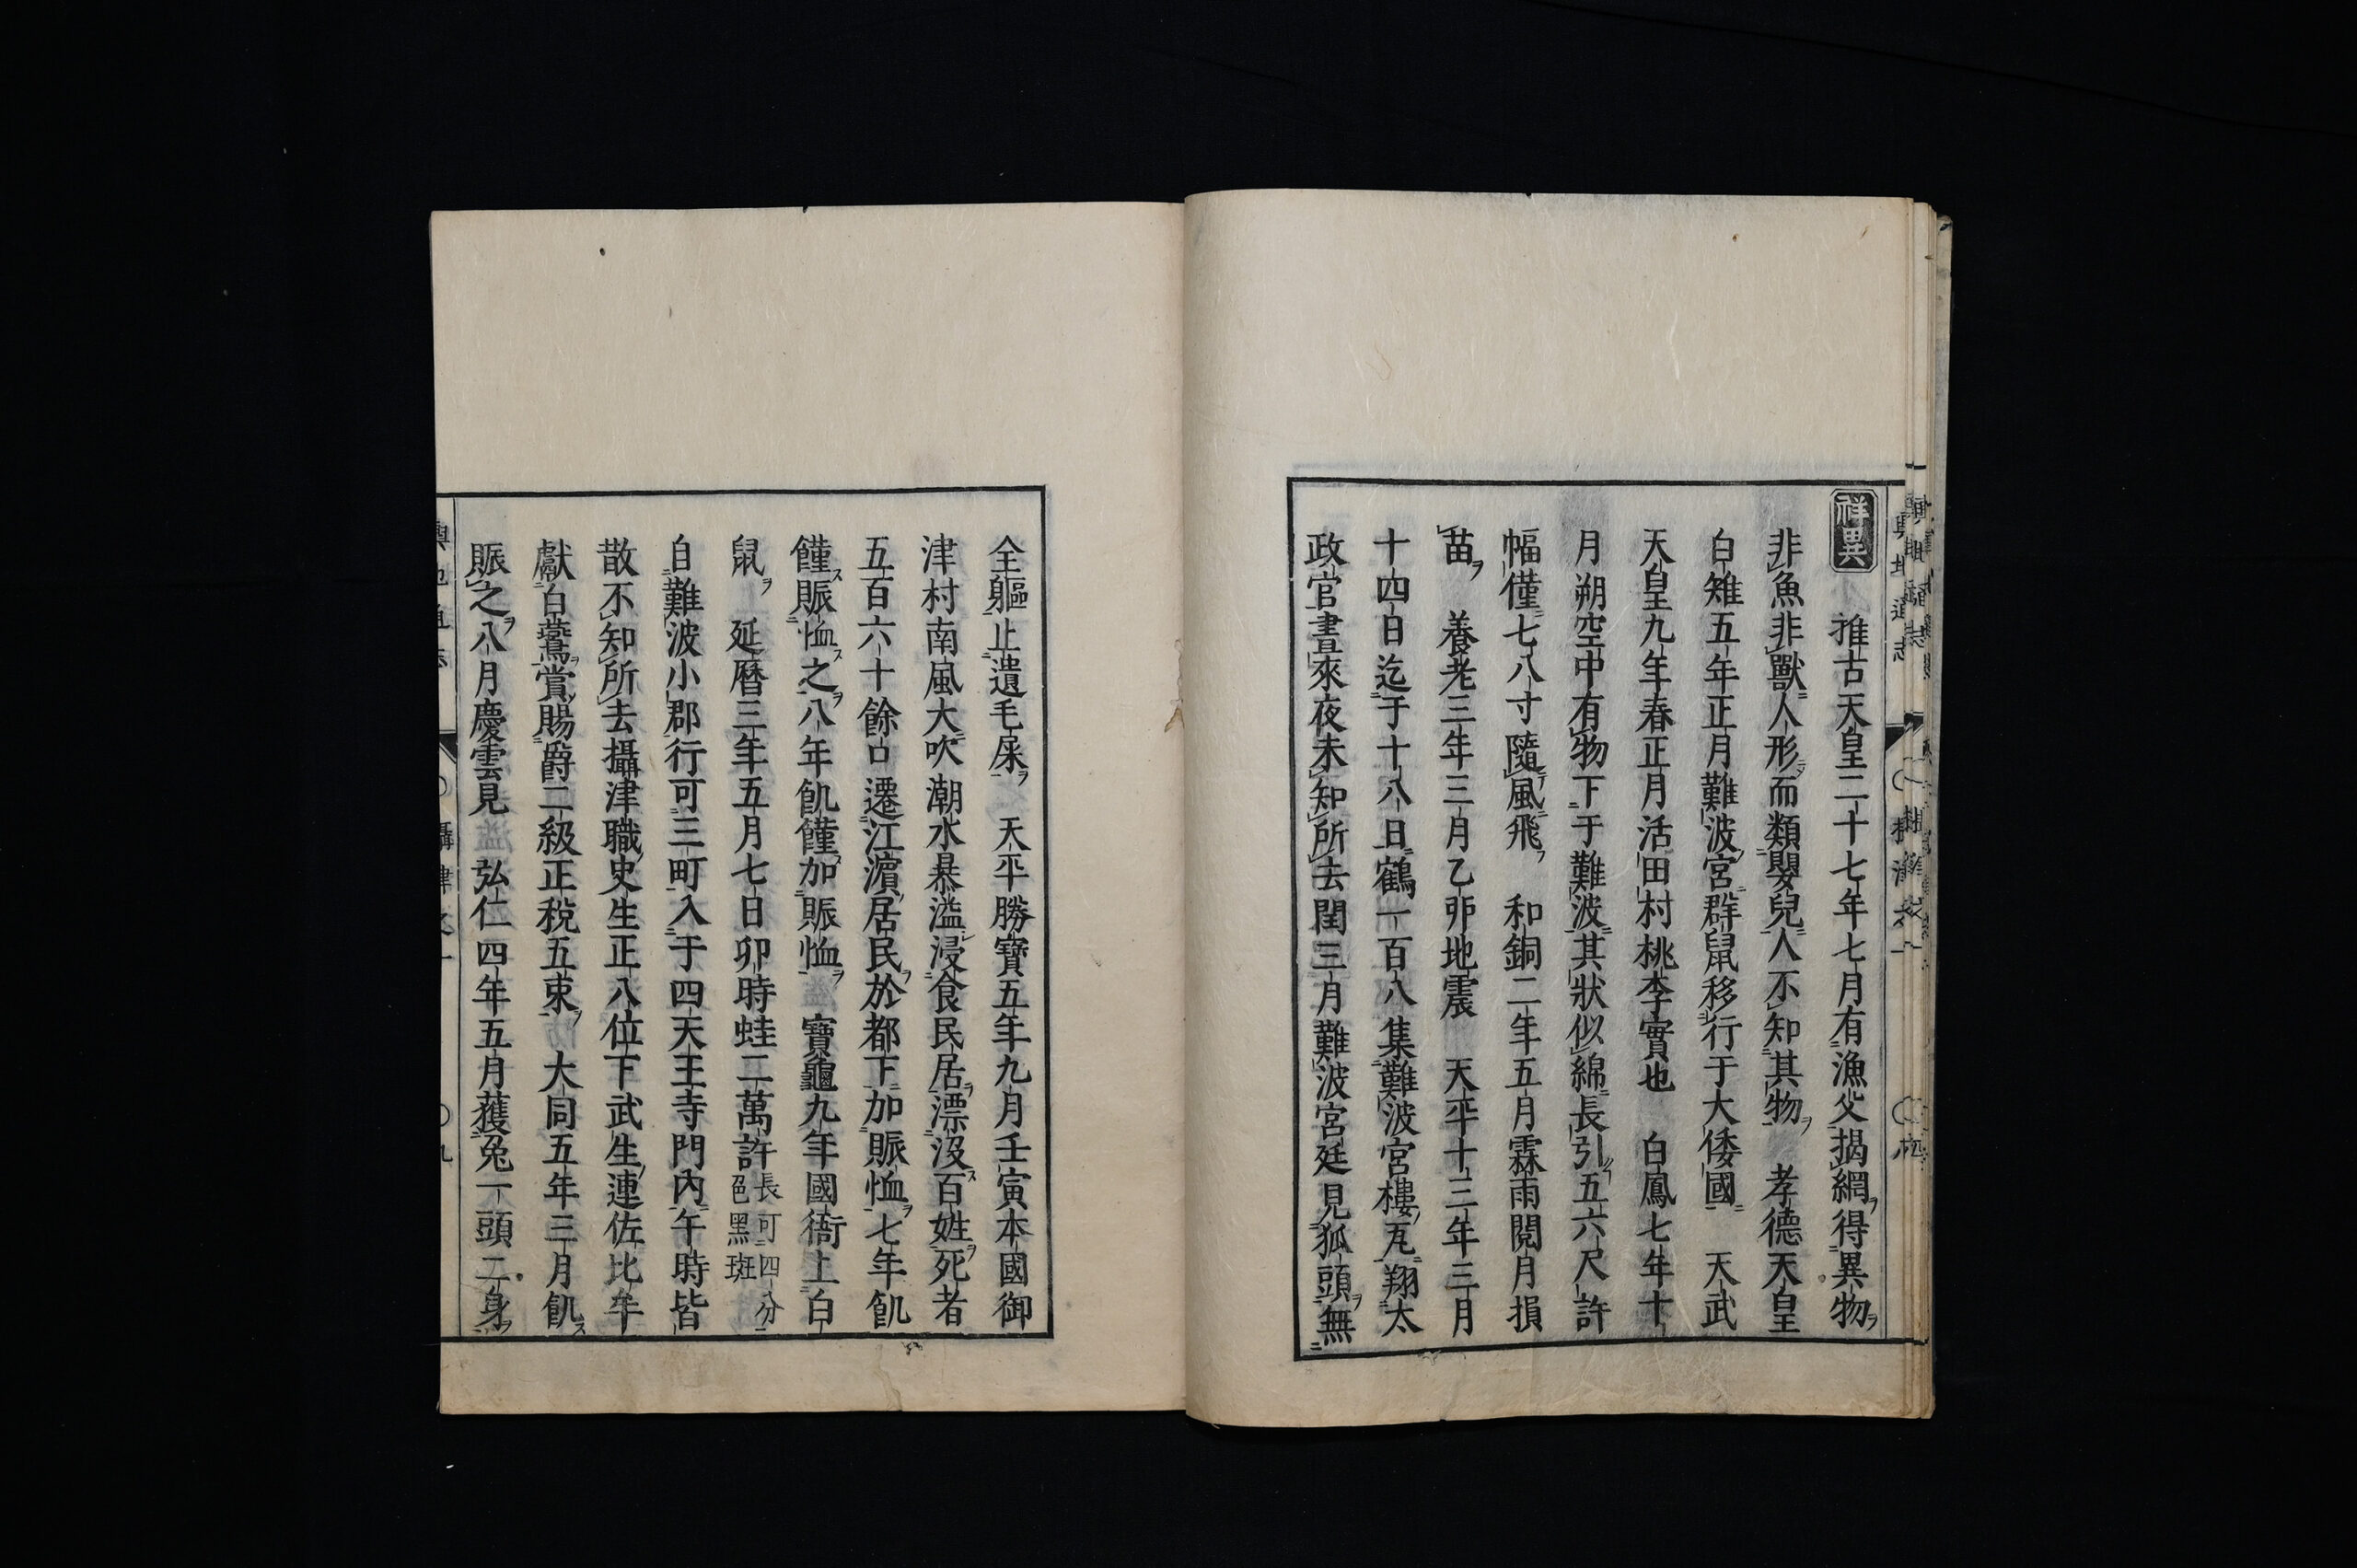 祥異
推古天皇二十七年七月有漁父揭網得異物
非魚非獸人形而類嬰兒人不知其物　孝德天皇
白雉五年正月難波宮群鼠移行于大倭國　天武
天皇九年春正月活田村桃李實也　白鳳七年十
月朔空中有物下于難波其狀似綿長引五六尺許
幅僅七八寸隨風飛　和銅二年五月霖雨閱月損
苗　養老三年三月乙卯地震　天平十三年三月
十四日迄于十八日鶴一百八集難波宮樓瓦翔太
政官晝來夜未知所去閏三月難波宮廷見狐頭無
全軀止遺毛屎　天平勝寶五年九月壬寅本國御
津村南風大吹潮水暴溢浸食民居漂沒百姓死者
五百六十餘口遷江濵居民於都下加賑恤七年飢
饉賑恤之八年飢饉加賑恤　寶龜九年國衙上白
鼠　延暦三年五月七日卯時蛙二萬許長可四分色黑斑
自難波小郡行可三町入于四天王寺門內午時皆
散不知所去攝津職史生正八位下武生連佐比牟
獻白鷰賞賜爵二級正稅五束　大同五年三月飢
賑之八月慶雲見　弘仁四年五月獲兔一頭二身